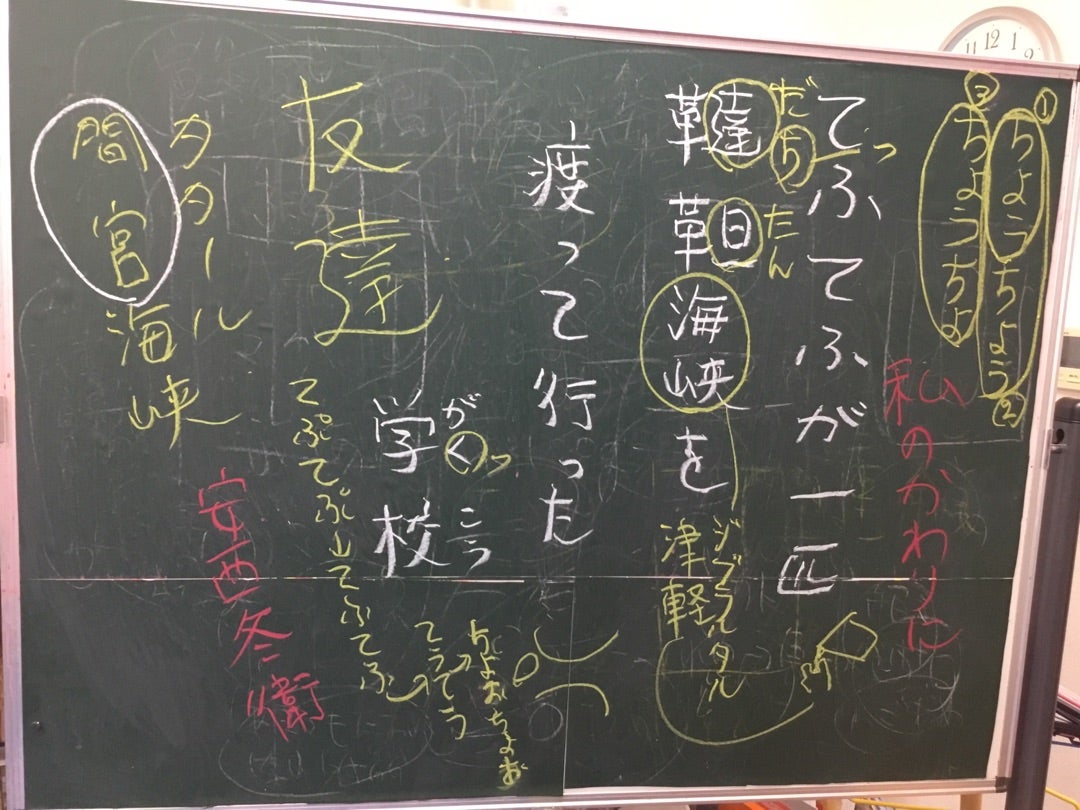 ①ちょうちょう②
③ちょうちょ
私のかわりに
てふてふが一匹
っ
だち
たん
韃靼海峡を
ジブラルタル
津軽
渡って行った
がくっこう
学校
ちよおちよお
てうてう
友達
てぷてぷ→てふてふ
タタール
間宮海峡
安西冬衛
11 12 1 2